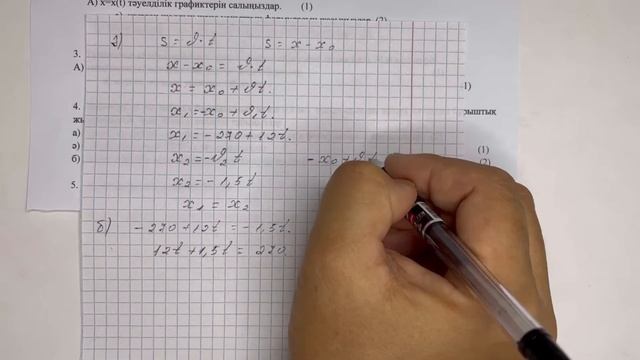 А) x=x(t) тәуелділік графиктерін салыңыздар. (1)
3.
А)
1)
4.
рыштық
а)
ә)
б)
(1)
(2)
5.
ә) s = ϑ · t s = x - x₀
x - x₀ = ϑ · t
x = x₀ + ϑt.
x₁ = -x₀ + ϑ₁t.
x₁ = - 270 + 12t.
x₂ = -ϑ₂ t - x₀ + ϑ t
x₂ = - 1,5t
x₁ = x₂
б) - 270 + 12t = - 1,5t.
12t + 1,5t = 270